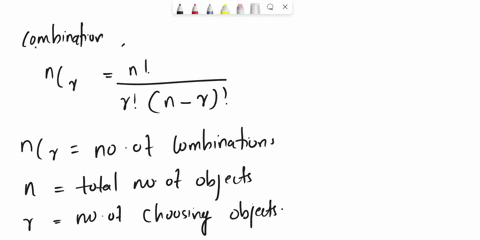 Combination.
nCr = n! / r! (n-r)!
nCr = no. of Combinations
n = total no of objects
r = no. of choosing objects.